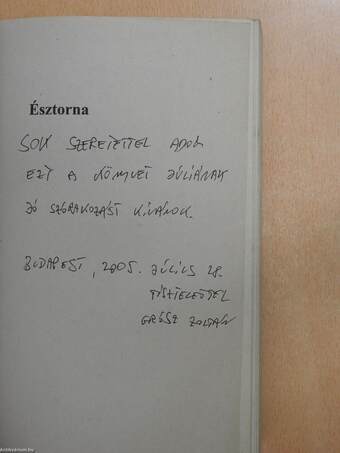 Észtorna
SOK SZERETETTEL ADOM
EZT A KÖNYVET JÚLIÁNAK
JÓ SZÓRAKOZÁST KÍVÁNOK.
BUDAPEST, 2005. JÚLIUS 28.
TISZTELETTEL
GRÓSZ ZOLTÁN